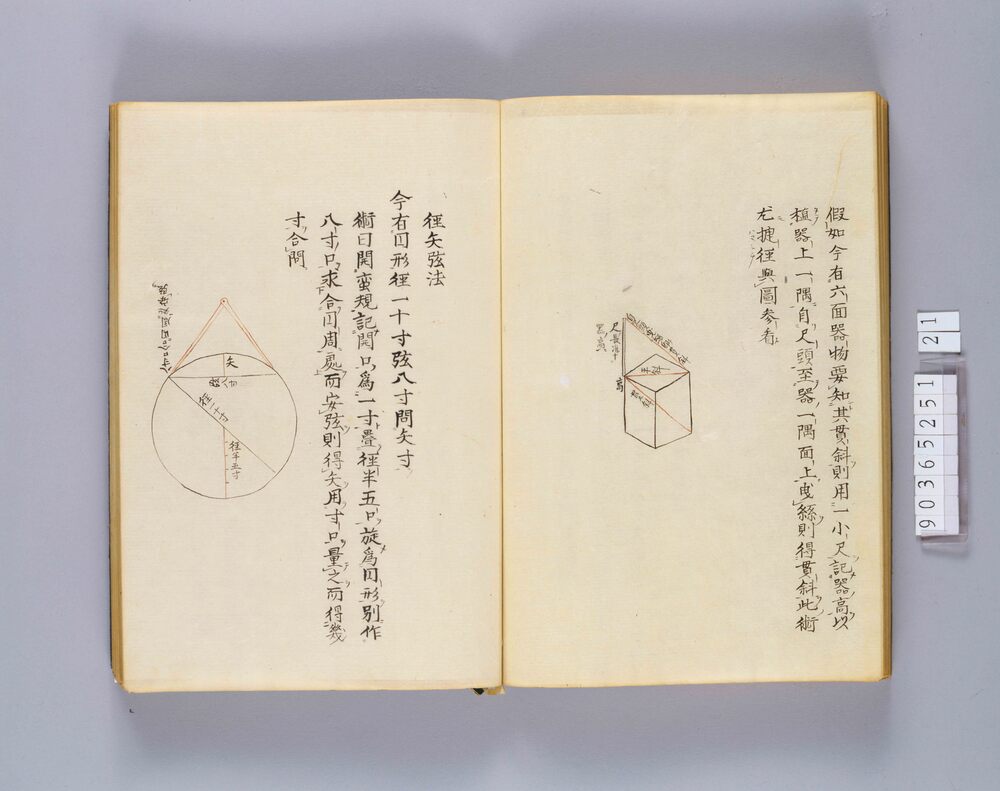 假如今有六面器物要知其貫斜則用一小尺記器高以
植器上一隅自尺頭至器一隅面上曳絲則得貫斜此術
尤捷徑與圖参看
平斜
高
徑矢弦法
今有囘形徑一十寸弦八寸問矢寸
術曰開蛮規記開口為一寸疊徑半五口旋為囘形別作
八寸口求合囘周處而安弦則得矢用寸口量之而得幾
寸合問
矢
弦八寸
徑一十寸
徑半五寸
9036525151
21